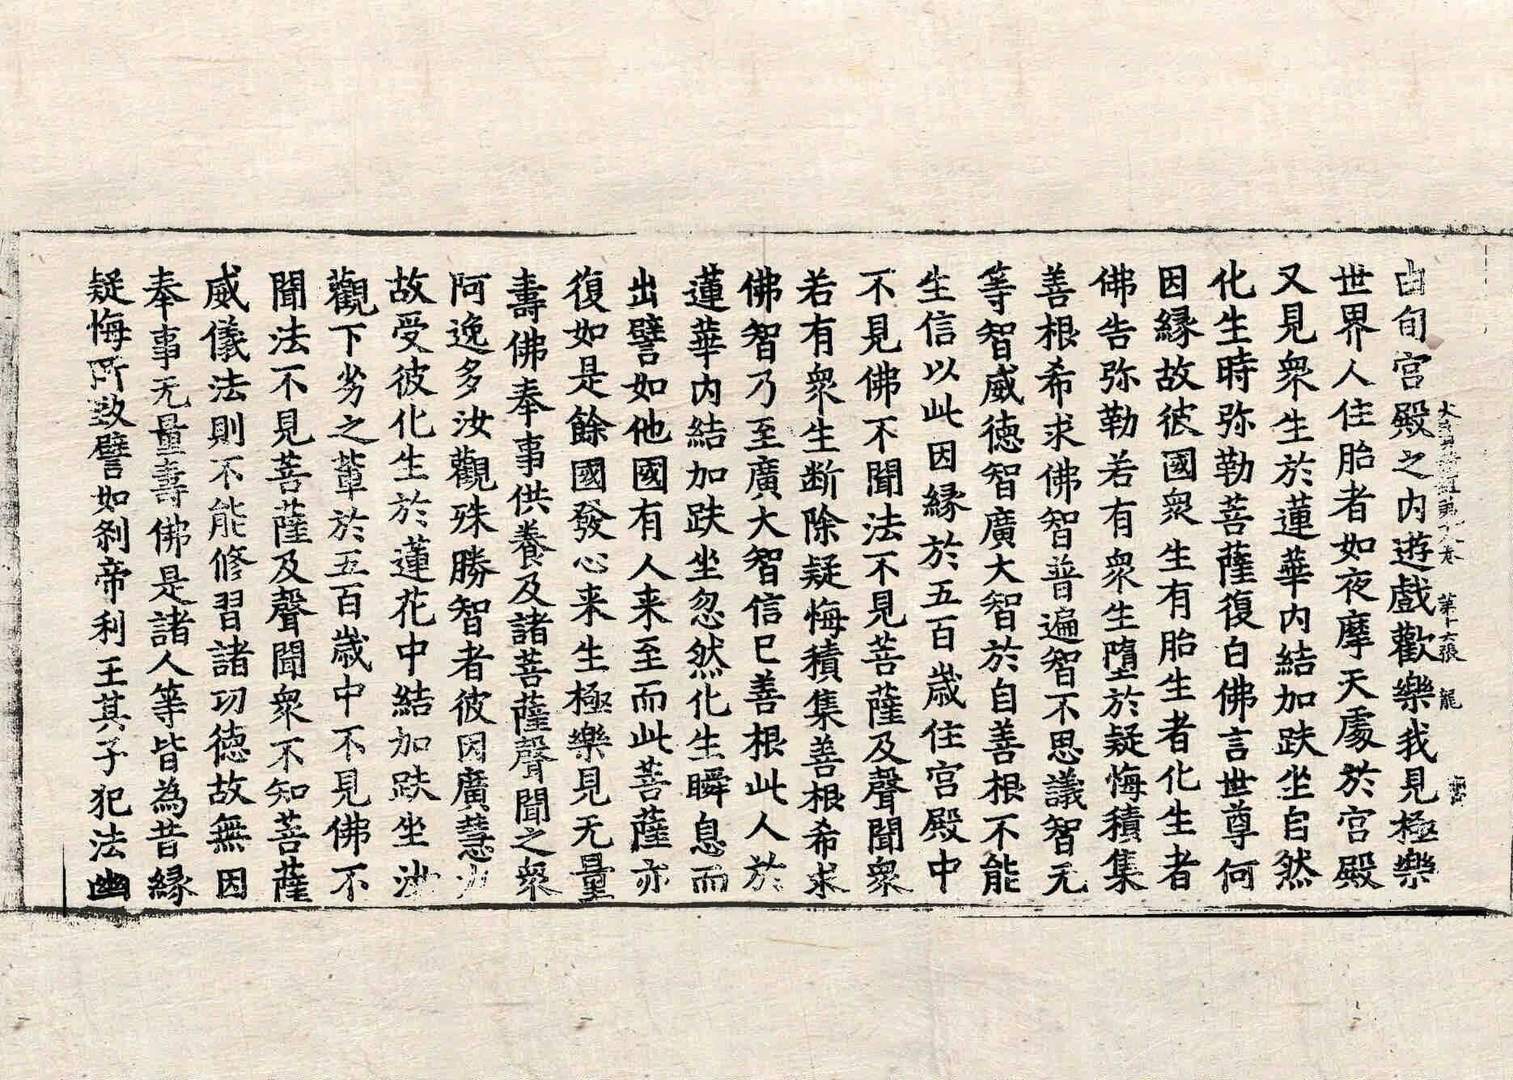 大寶積經第十八卷　第十六張　龍
由旬宮殿之内遊戲歡樂我見極樂
世界人住胎者如夜摩天處於宮殿
又見衆生於蓮華内結加趺坐自然
化生時弥勒菩薩復白佛言世尊何
因緣故彼國衆生有胎生者化生者
佛告弥勒若有衆生墮於疑悔積集
善根希求佛智普遍智不思議智无
等智威德智廣大智於自善根不能
生信以此因緣於五百歲住宮殿中
不見佛不聞法不見菩薩及聲聞衆
若有衆生断除疑悔積集善根希求
佛智乃至廣大智信已善根此人於
蓮華内結加趺坐忽然化生瞬息而
出譬如他國有人来至而此菩薩亦
復如是餘國發心来生極樂見无量
壽佛奉事供養及諸菩薩聲聞之衆
阿逸多汝觀殊勝智者彼因廣慧力
故受彼化生於蓮花中結加趺坐汝
觀下劣之輩於五百歲中不見佛不
聞法不見菩薩及聲聞衆不知菩薩
威儀法則不能修習諸功德故無因
奉事无量壽佛是諸人等皆為昔緣
疑悔所致譬如刹帝利王其子犯法幽